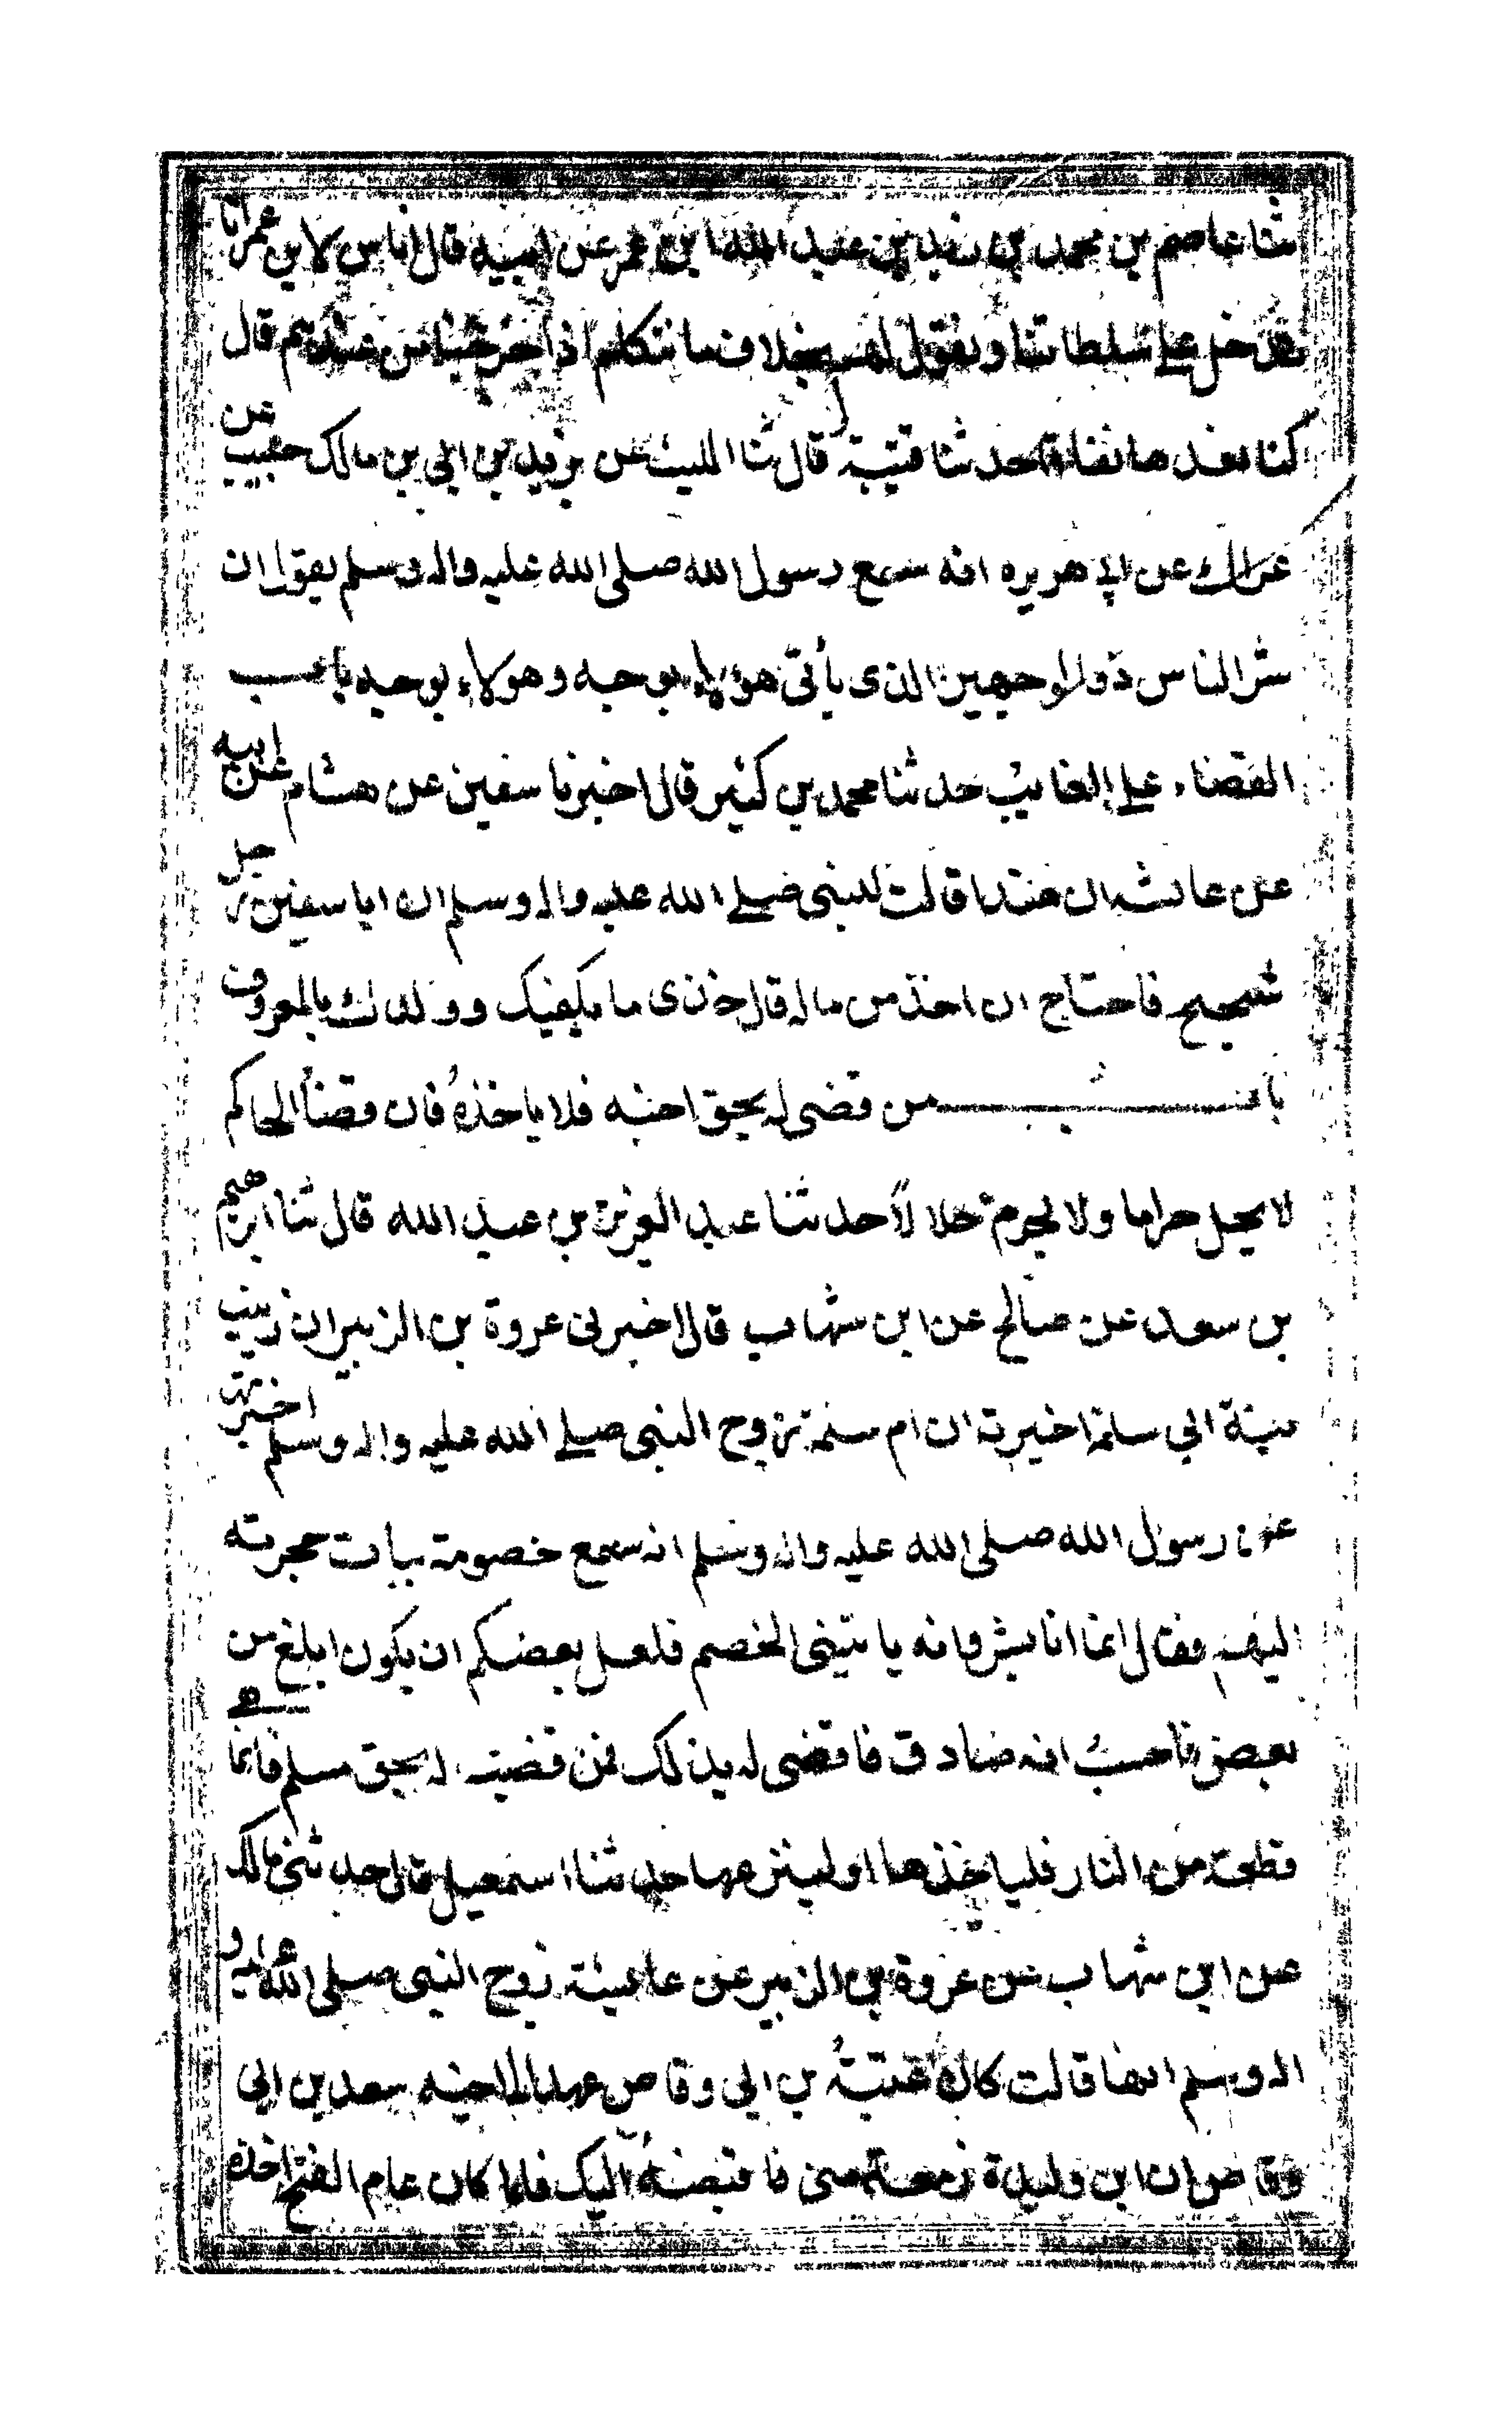 ثنا عاصم بن محمد بن زيد بن عبد الله ابن عمر عن ابيه قال اناس لابن عمر انا
ندخل على سلطاننا ونقول لهم بخلاف ما نتكلم اذا خرجنا من عندهم قال
كنا نعدها نفاقا حدثنا قتيبة قال ثنا الليث عن يزيد بن ابي بن مالك حبيب عن
عراك عن ابي هريره انه سمع رسول الله صلى الله عليه واله وسلم يقول ان
شر الناس ذو الوجهين الذي يأتى هؤلاء بوجه وهولاء بوجه باب
القضاء على الغايب حدثنا محمد بن كثير قال اخبرنا سفين عن هشام عن ابيه
عن عائشه ان هندا قالت للنبى صلے الله عليه واله وسلم ان ابا سفين رجل
شحيح فاحتاج ان اخذ من ماله قال خذى ما يكفيك وولدك بالمعروف
باب من قضى له بحق اخيه فلا ياخذه فان قضأ الحاكم
لا يحل حراما ولا يحرم حلالاً حدثنا عبد العزيز بن عبد الله قال ثنا ابرهيم
بن سعد عن صالح عن ابن شهاب قال اخبرنى عروة بن الزبير ان زينب
بنة ابي سلمة اخبرته ان ام سلمة زوج النبى صلے الله عليه واله وسلم اخبرتها
عن رسول الله صلى الله عليه واله وسلم انه سمع خصومة بباب حجرته
اليهم فقال انما انا بشر وانه ياتينى الخصم فلعل بعضكم ان يكون ابلغ من
بعض فاحسبُ انه صادق فاقضى له بذلك فمن قضيت له بحق مسلم فانما هے
قطعة من النار فلياخذها او ليتركها حدثنا اسمعيل قال حدثنى مالك
عن ابن شهاب عن عروة بن الزبير عن عائشة زوج النبى صلى الله عليه و
اله وسلم انها قالت كان عتبةُ بن ابي وقاص عهد الى اخيه سعد بن ابي
وقاص ان ابن وليدة زمعة منى فاقبضهُ اليك فلما كان عام الفتح اخذه